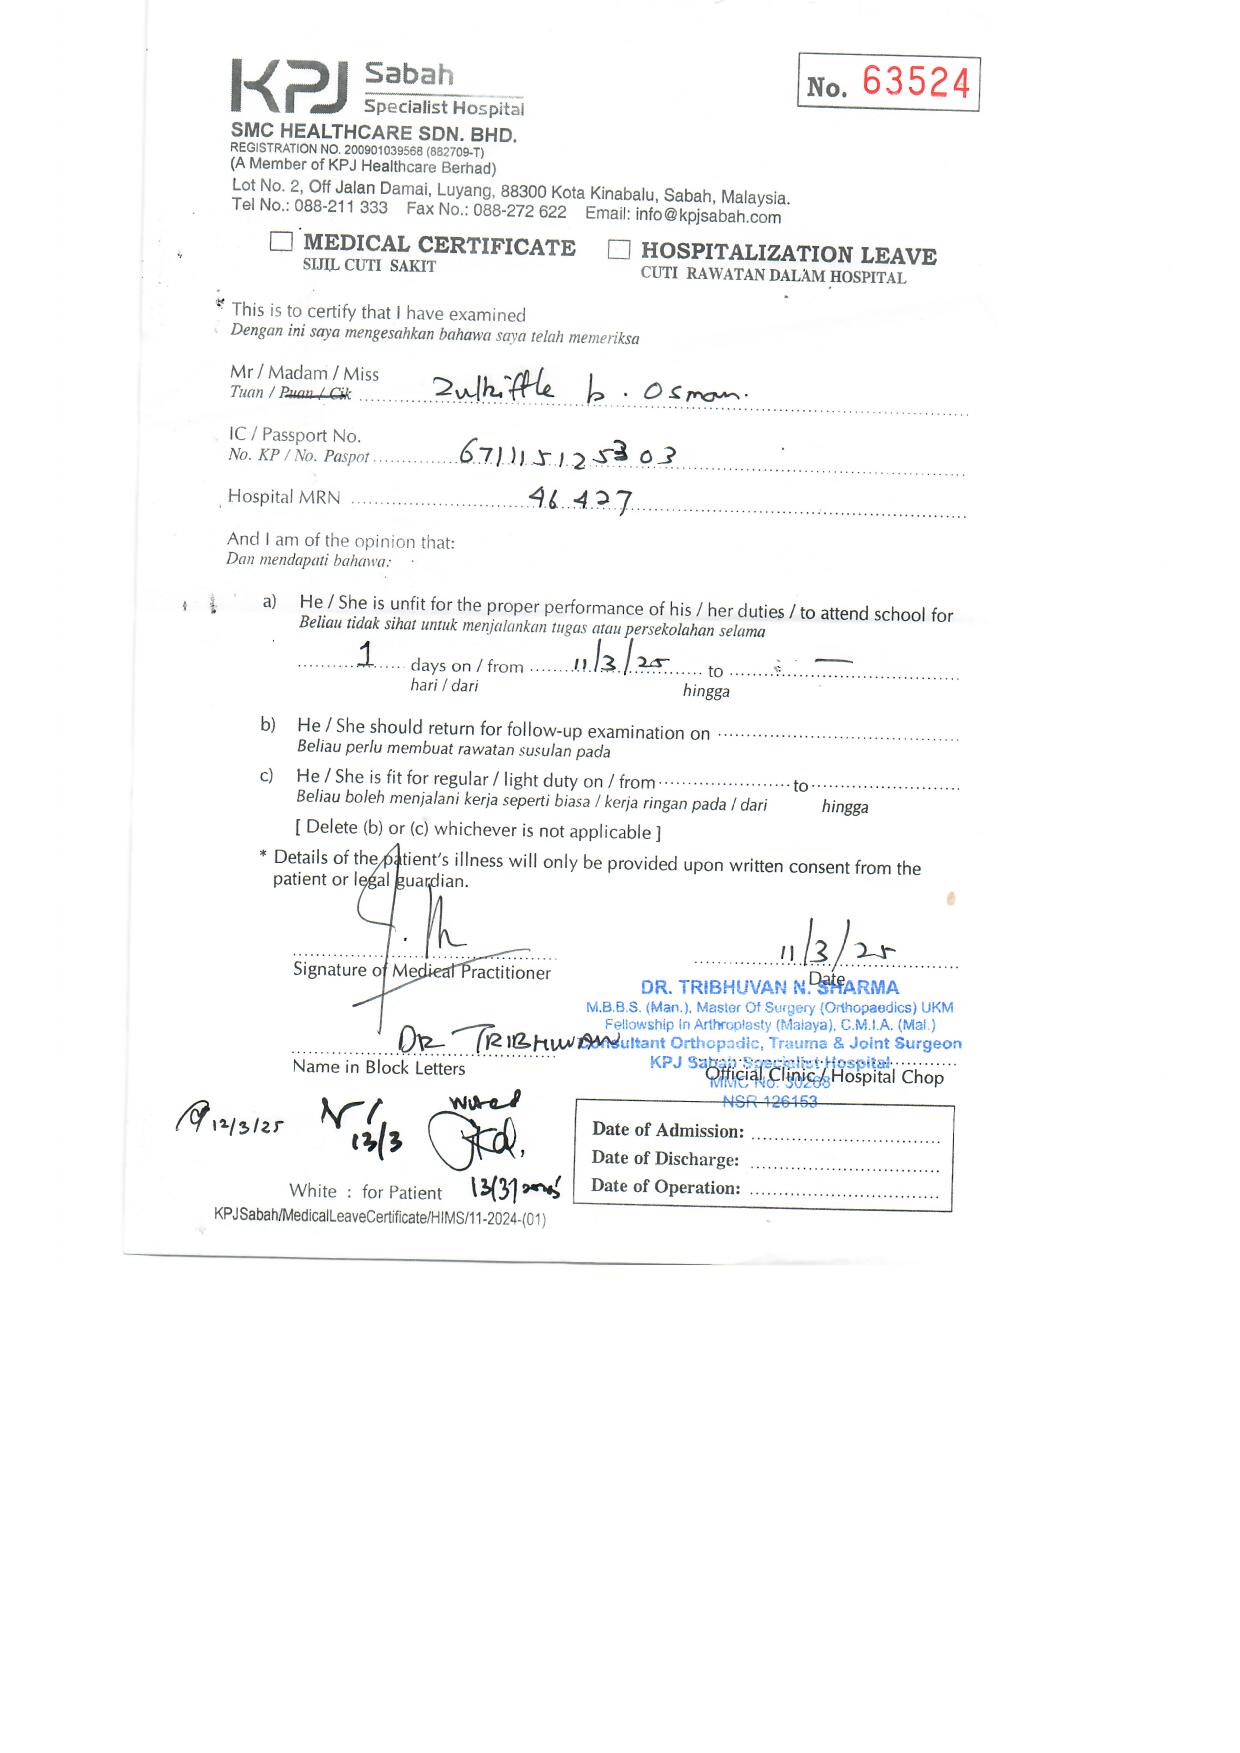 KPJ Sabah
Specialist Hospital
No. 63524
SMC HEALTHCARE SDN. BHD.
REGISTRATION NO. 200901039568 (882709-T)
(A Member of KPJ Healthcare Berhad)
Lot No. 2, Off Jalan Damai, Luyang, 88300 Kota Kinabalu, Sabah, Malaysia.
Tel No.: 088-211 333 Fax No.: 088-272 622 Email: info@kpjsabah.com
MEDICAL CERTIFICATE HOSPITALIZATION LEAVE
SIJIL CUTI SAKIT CUTI RAWATAN DALAM HOSPITAL
This is to certify that I have examined
Dengan ini saya mengesahkan bahawa saya telah memeriksa
Mr / Madam / Miss
Tuan / Puan / Cik Zulkiffle b. Osman.
IC / Passport No.
No. KP / No. Paspot 671115125303
Hospital MRN 46427
And I am of the opinion that:
Dan mendapati bahawa:
a) He / She is unfit for the proper performance of his / her duties / to attend school for
Beliau tidak sihat untuk menjalankan tugas atau persekolahan selama
1 days on / from 11/3/25 to —
hari / dari hingga
b) He / She should return for follow-up examination on
Beliau perlu membuat rawatan susulan pada
c) He / She is fit for regular / light duty on / from to
Beliau boleh menjalani kerja seperti biasa / kerja ringan pada / dari hingga
[ Delete (b) or (c) whichever is not applicable ]
* Details of the patient's illness will only be provided upon written consent from the
patient or legal guardian.
11/3/25
Signature of Medical Practitioner Date
DR. TRIBHUVAN N. SHARMA
M.B.B.S. (Man.), Master Of Surgery (Orthopaedics) UKM
Fellowship In Arthroplasty (Malaya), C.M.I.A. (Mal.)
Consultant Orthopadic, Trauma & Joint Surgeon
KPJ Sabah Specialist Hospital
MMC No. 30268
NSR 126153
DR TRIBHUVAN
Name in Block Letters Official Clinic / Hospital Chop
12/3/25
13/3
13/3/2025
Date of Admission:
Date of Discharge:
Date of Operation:
White : for Patient
KPJSabah/MedicalLeaveCertificate/HIMS/11-2024-(01)